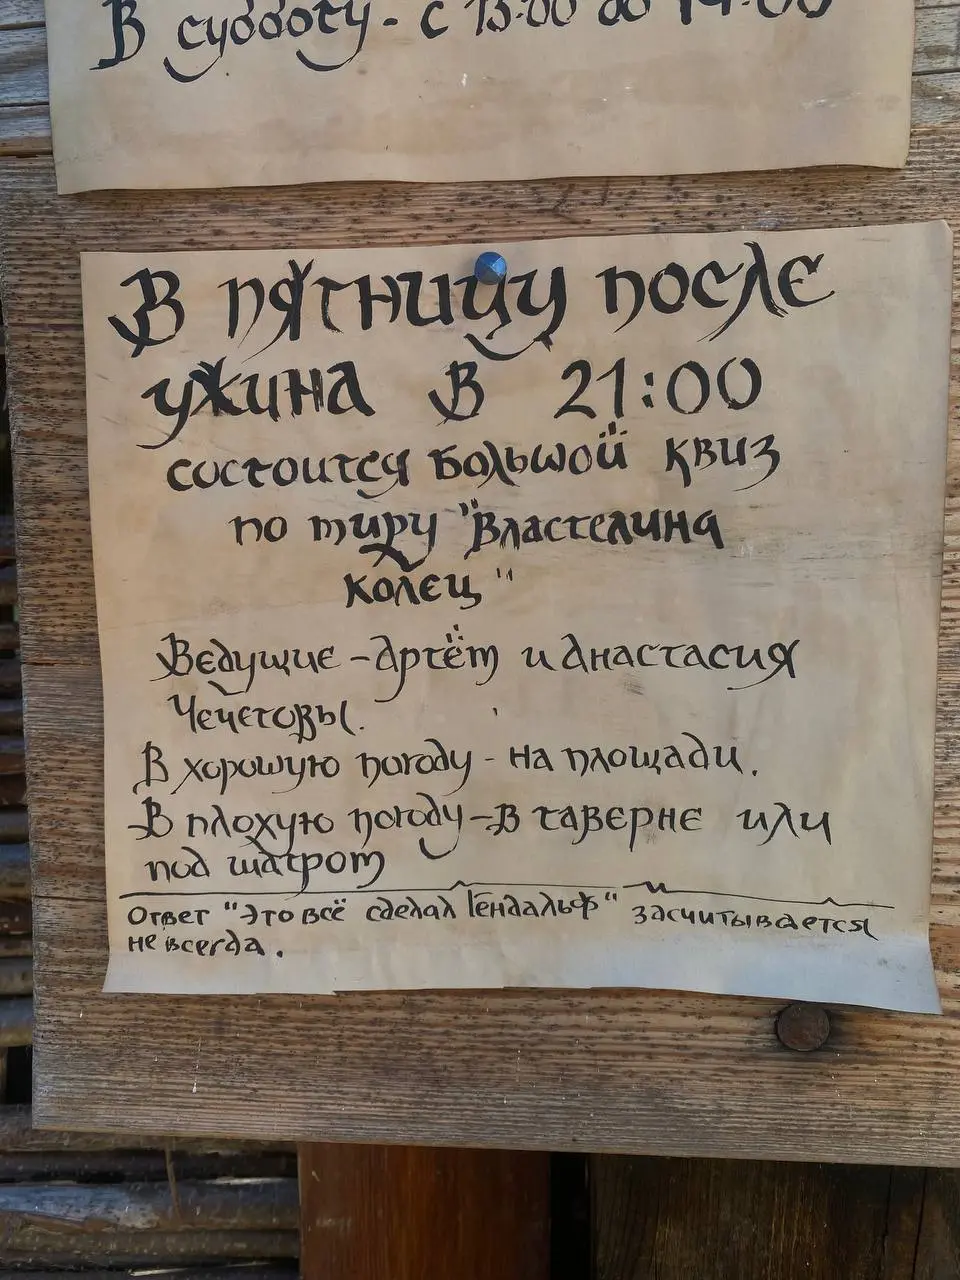 В субботу - с 13:00 до 14:00
В пятницу после
ужина в 21:00
состоится большой квиз
по миру "Властелина
колец"
Ведущие - Артём и Анастасия
Чечетовы.
В хорошую погоду - на площади.
В плохую погоду - в таверне или
под шатром
Ответ "Это всё сделал Гендальф" засчитывается
не всегда.